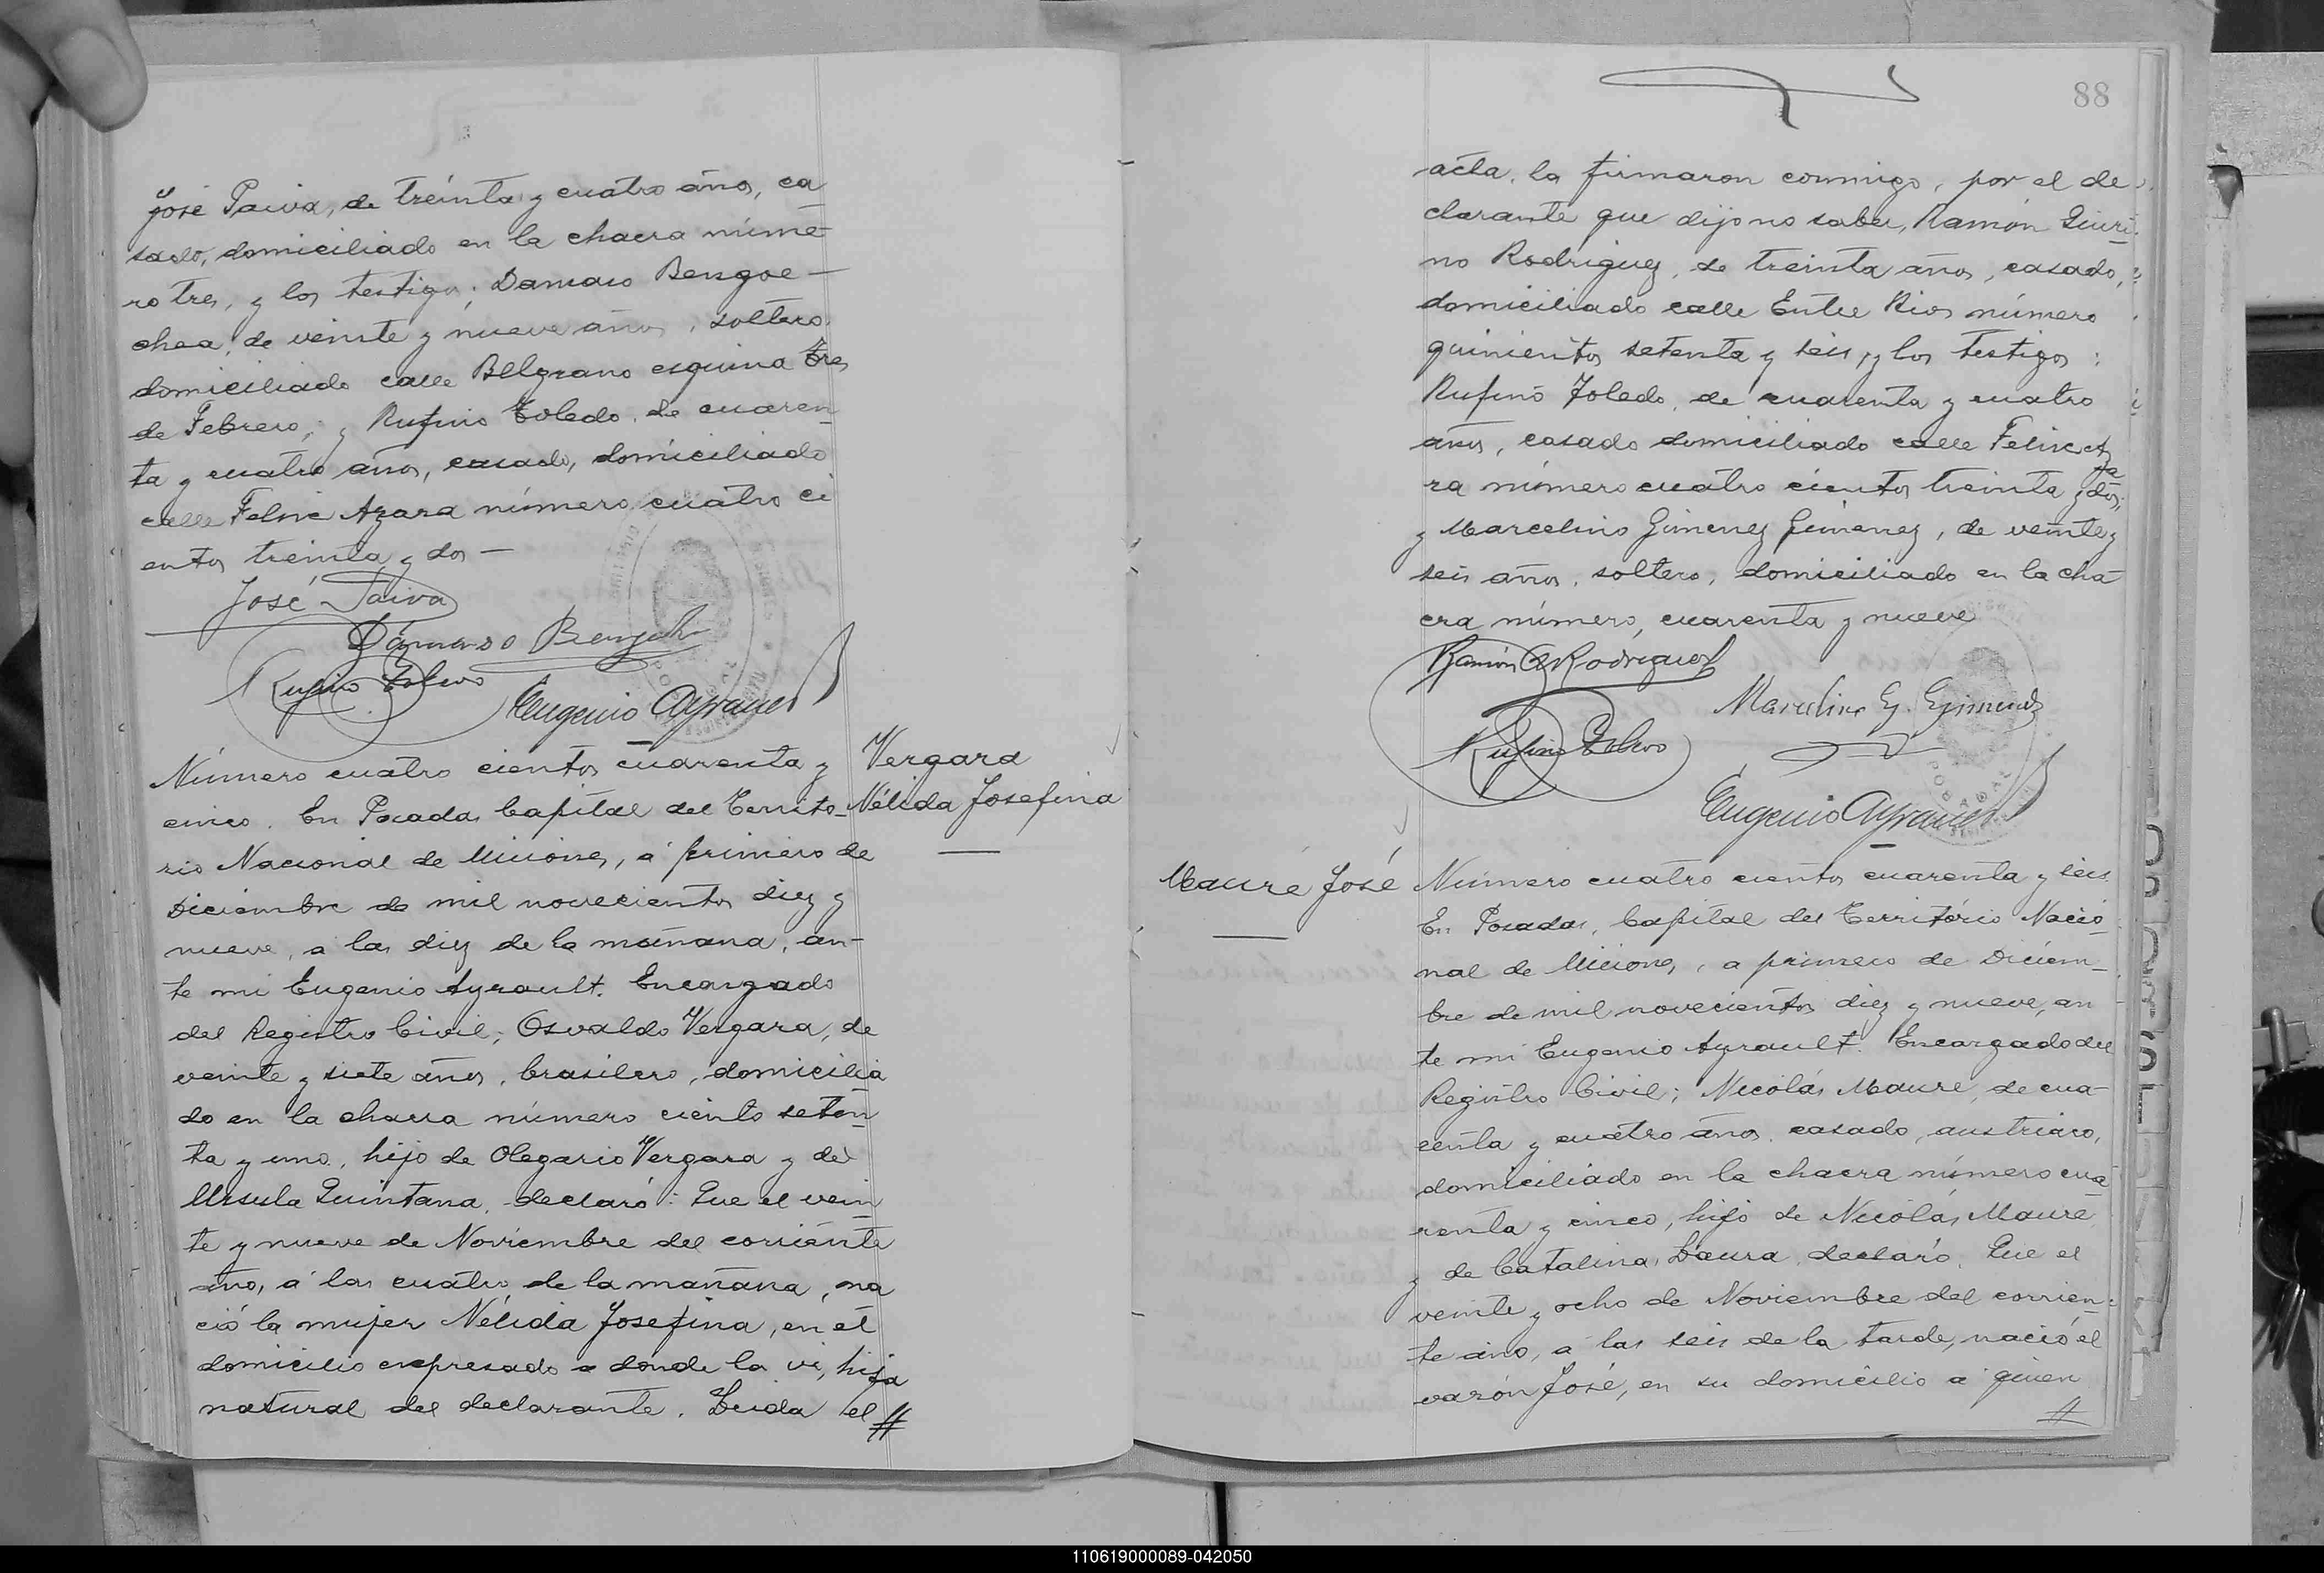 José Paiva, de treinta y cuatro años, ca
sado, domiciliado en la chacra núme
ro tres, y los testigos; Damaso Bengoe—
chea, de veinte y nueve años, soltero,
domiciliado calle Belgrano esquina tres
de Febrero; y Rufino Toledo, de cuaren
ta y cuatro años, casado, domiciliado
calle Felix Azara número cuatro ci
entos treinta y dos —
José Paiva
Dámaso
Rufino Toledo
Eugenio Ayrault
Número cuatro cientos cuarenta y
cinco. En Posadas Capital del Territo-
rio Nacional de Misiones, á primero de
Diciembre de mil novecientos diez y
nueve, a las diez de la mañana, an-
te mi Eugenio Ayrault. Encargado
del Registro Civil; Osvaldo Vergara, de
veinte y siete años, brasilero, domicilia
do en la chacra número ciento seten
ta y uno, hijo de Olegario Vergara y de
Ursula Quintana, declaró: Que el vein
te y nueve de Noviembre del corriente
año, a las cuatro de la mañana, na
ció la mujer Nélida Josefina, en el
domicilio expresado a donde la vi, hija
natural del declarante. Leida el #
Vergara
Nélida Josefina
88
acta, la firmaron conmigo, por el de
clarante que dijo no saber, Ramón Quiri
no Rodriguez, de treinta años, casado,
domiciliado calle Entre Rios número
quinientos setenta y seis, y los testigos:
Rufino Toledo, de cuarenta y cuatro
años, casado domiciliado calle Felix Aza
ra número cuatro cientos treinta y dos;
y Marcelino Gimenez Gimenez, de veinte y
seis años, soltero, domiciliado en la cha
cra número, cuarenta y nueve
Ramón Q Rodriguez
Marcelino G. Gimenez
Rufino Toledo
Eugenio Ayrault
Mauré José
Número cuatro cientos cuarenta y seis
En Posadas, Capital del Território Nacio
nal de Misiones, a primero de Diciem-
bre de mil novecientos diez y nueve, an
te mi Eugenio Ayrault. Encargado del
Registro Civil; Nicolás Maure, de cua-
renta y cuatro años, casado, austriaco,
domiciliado en la chacra número cua
renta y cinco, hijo de Nicolás Maure
y de Catalina Laura, declaró. Que el
veinte y ocho de Noviembre del corrien-
te año, a las seis de la tarde, nació el
varón José, en su domicilio a quien
#
110619000089-042050